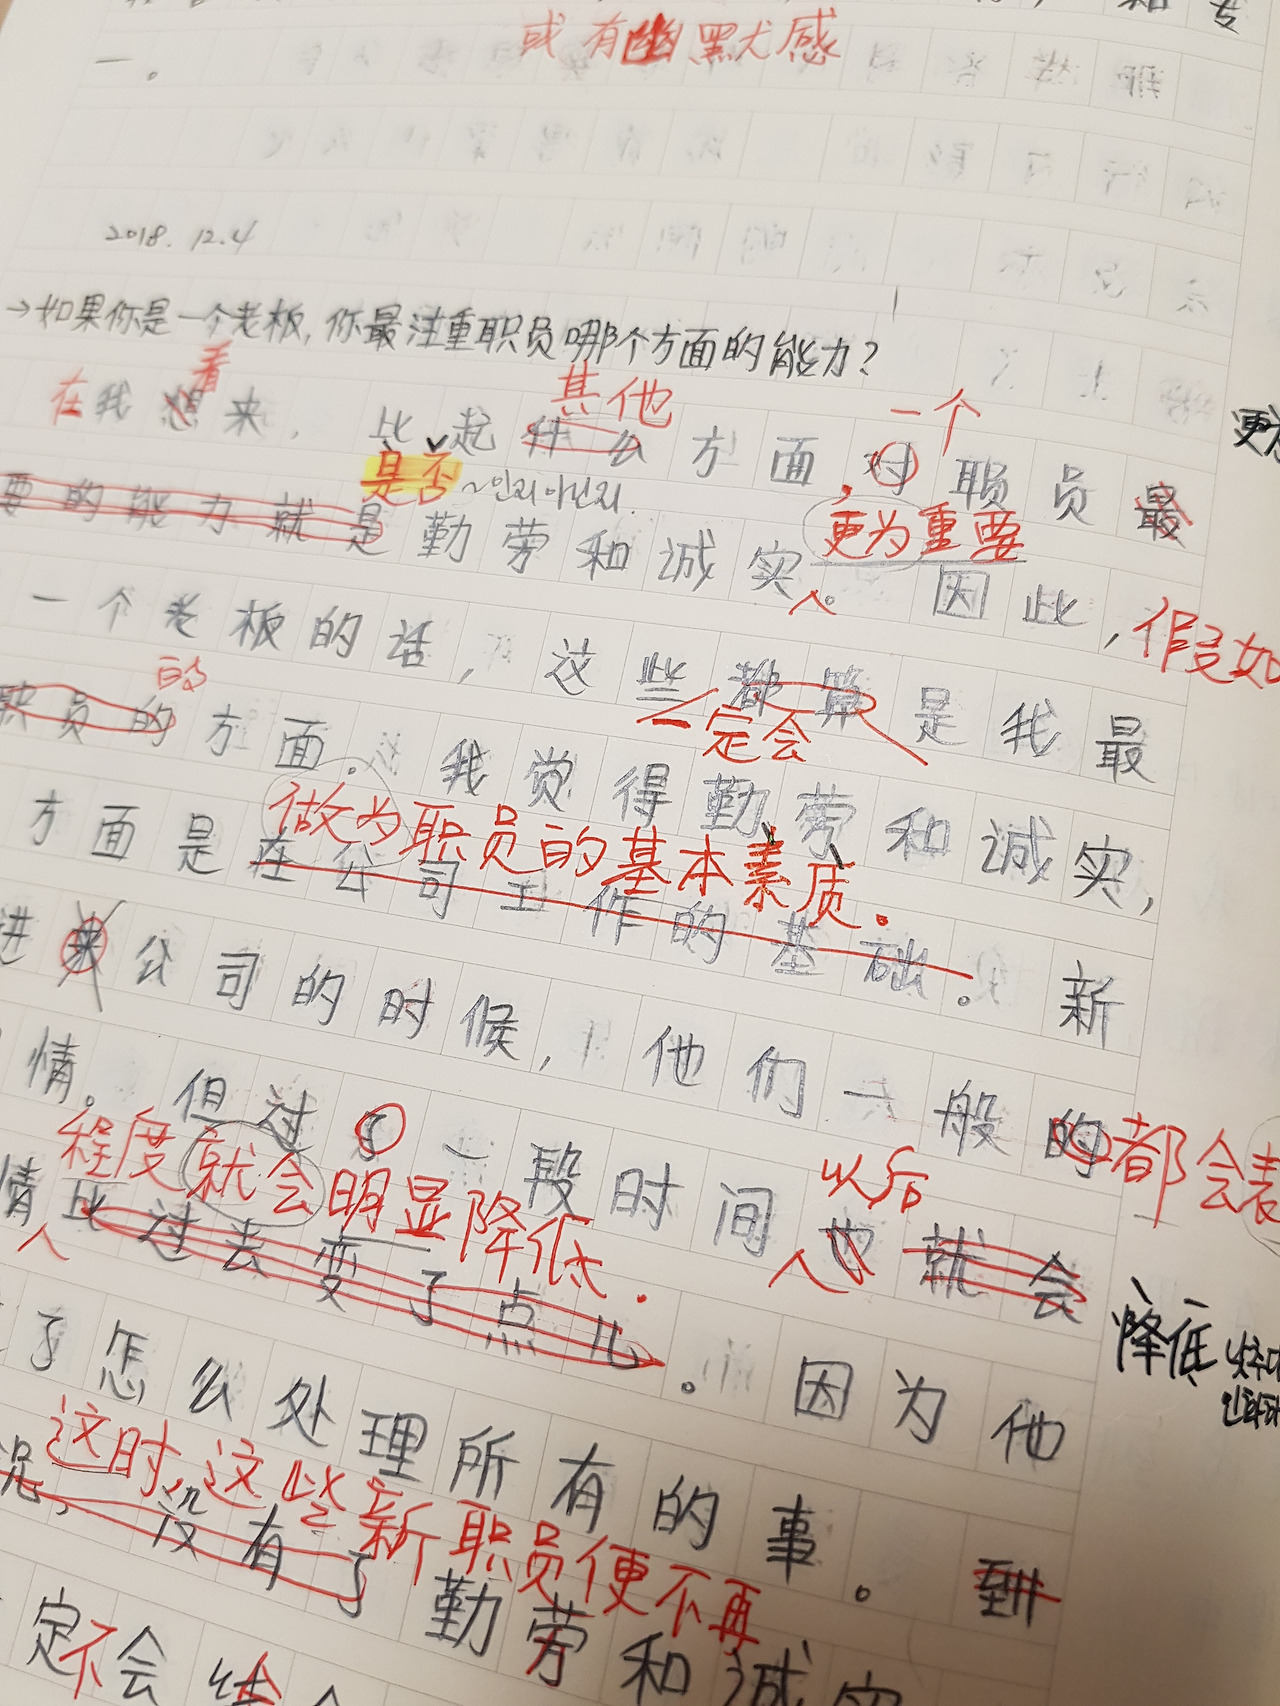 和 专
或有幽默感
一。
2018. 12.4
→如果你是一个老板,你最注重职员哪个方面的能力?
看
在我想来, 比起什么方面,对职员最
其他
一个
是否~인지 아닌지.
更为重要
要的能力就是勤劳和诚实。因此,假如
一个老板的话,这些都算是我最
的
一定会
职员的方面。我觉得勤劳和诚实,
做为职员的基本素质。
方面是在公司工作的基础。新
进来公司的时候,他们一般的都会表
情。但过了一段时间也就会
以后
程度就会明显降低.
情比过去变了点儿。因为他
降低
了怎么处理所有的事。到
这时,这些新职员便不再
况,没有了勤劳和诚实
定不会给